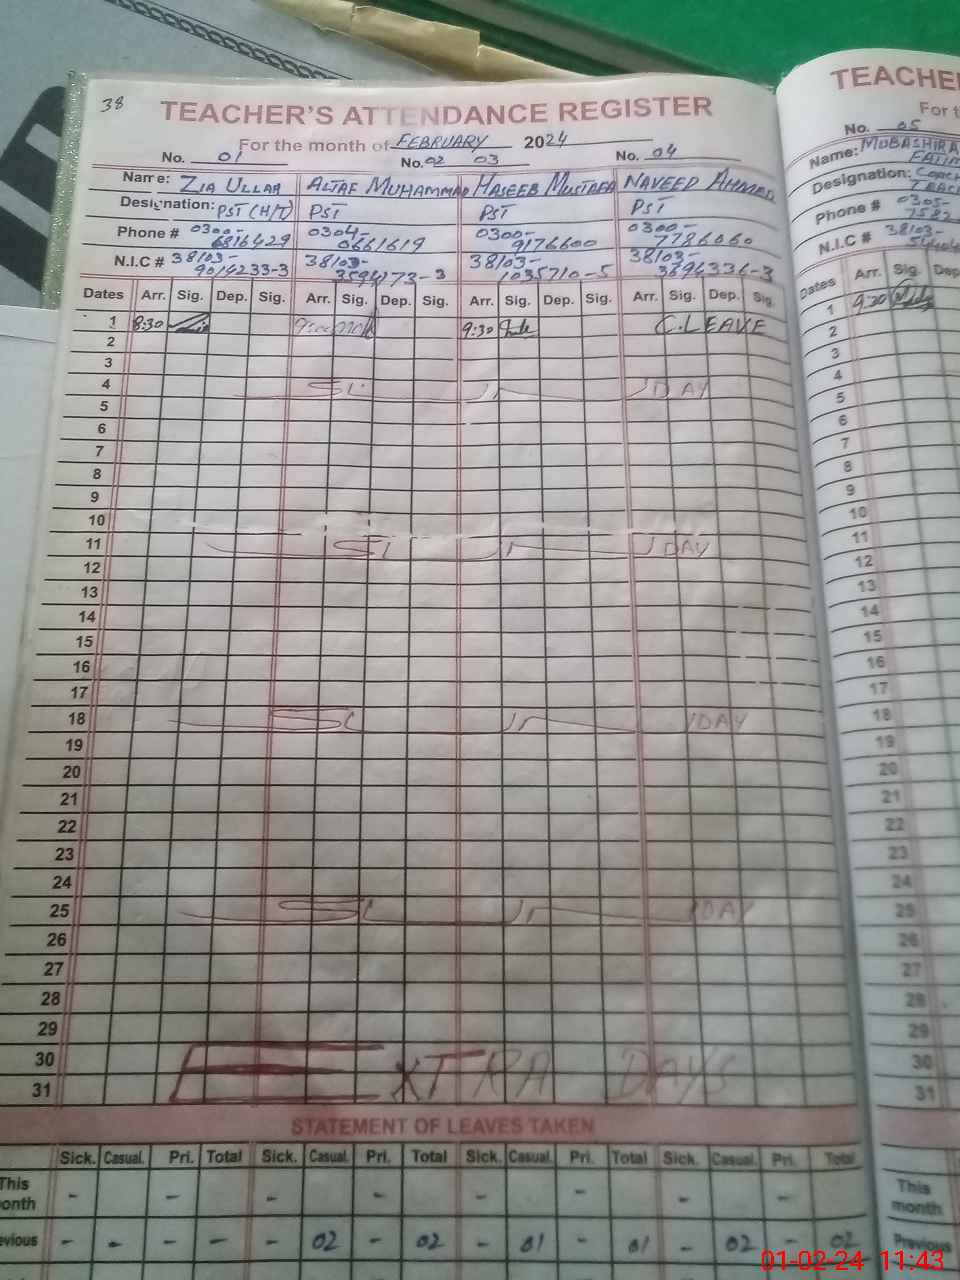 38
TEACHER'S ATTENDANCE REGISTER
For the month of FEBRUARY 2024
No. 01 No. 02 03 No. 04
Name: ZIA ULLAH ALTAF MUHAMMAD HASEEB MUSTAFA NAVEED AHMED
Designation: PST (H/T) PST PST PST
Phone # 0300-6816429 0304-0661619 0300-9176600 0300-7786060
N.I.C # 38103-9014233-3 38103-3594173-3 38103-1035710-5 38103-3894336-3
Dates Arr. Sig. Dep. Sig. Arr. Sig. Dep. Sig. Arr. Sig. Dep. Sig. Arr. Sig. Dep. Sig.
1 8:30 9:30 C.LEAVE
2
3
4 SUNDAY
5
6
7
8
9
10
11 SUNDAY
12
13
14
15
16
17
18 SUNDAY
19
20
21
22
23
24
25 SUNDAY
26
27
28
29
30 EXTRA DAYS
31
STATEMENT OF LEAVES TAKEN
Sick. Casual. Pri. Total Sick. Casual. Pri. Total Sick. Casual. Pri. Total Sick. Casual. Pri. Total
This month - - - - - - - -
evious - - - - - 02 - 02 - 01 - 01 - 02 - 02
TEACHE
For t
No. 05
Name: MUBASHIRA
FATIM
Designation:
Phone # 0305-
N.I.C # 38103-
Dates Arr. Sig. Dep
1 9:30
2
3
4
5
6
7
8
9
10
11
12
13
14
15
16
17
18
19
20
21
22
23
24
25
26
27
28
29
30
31
This month
Previous
01-02-24 11:43